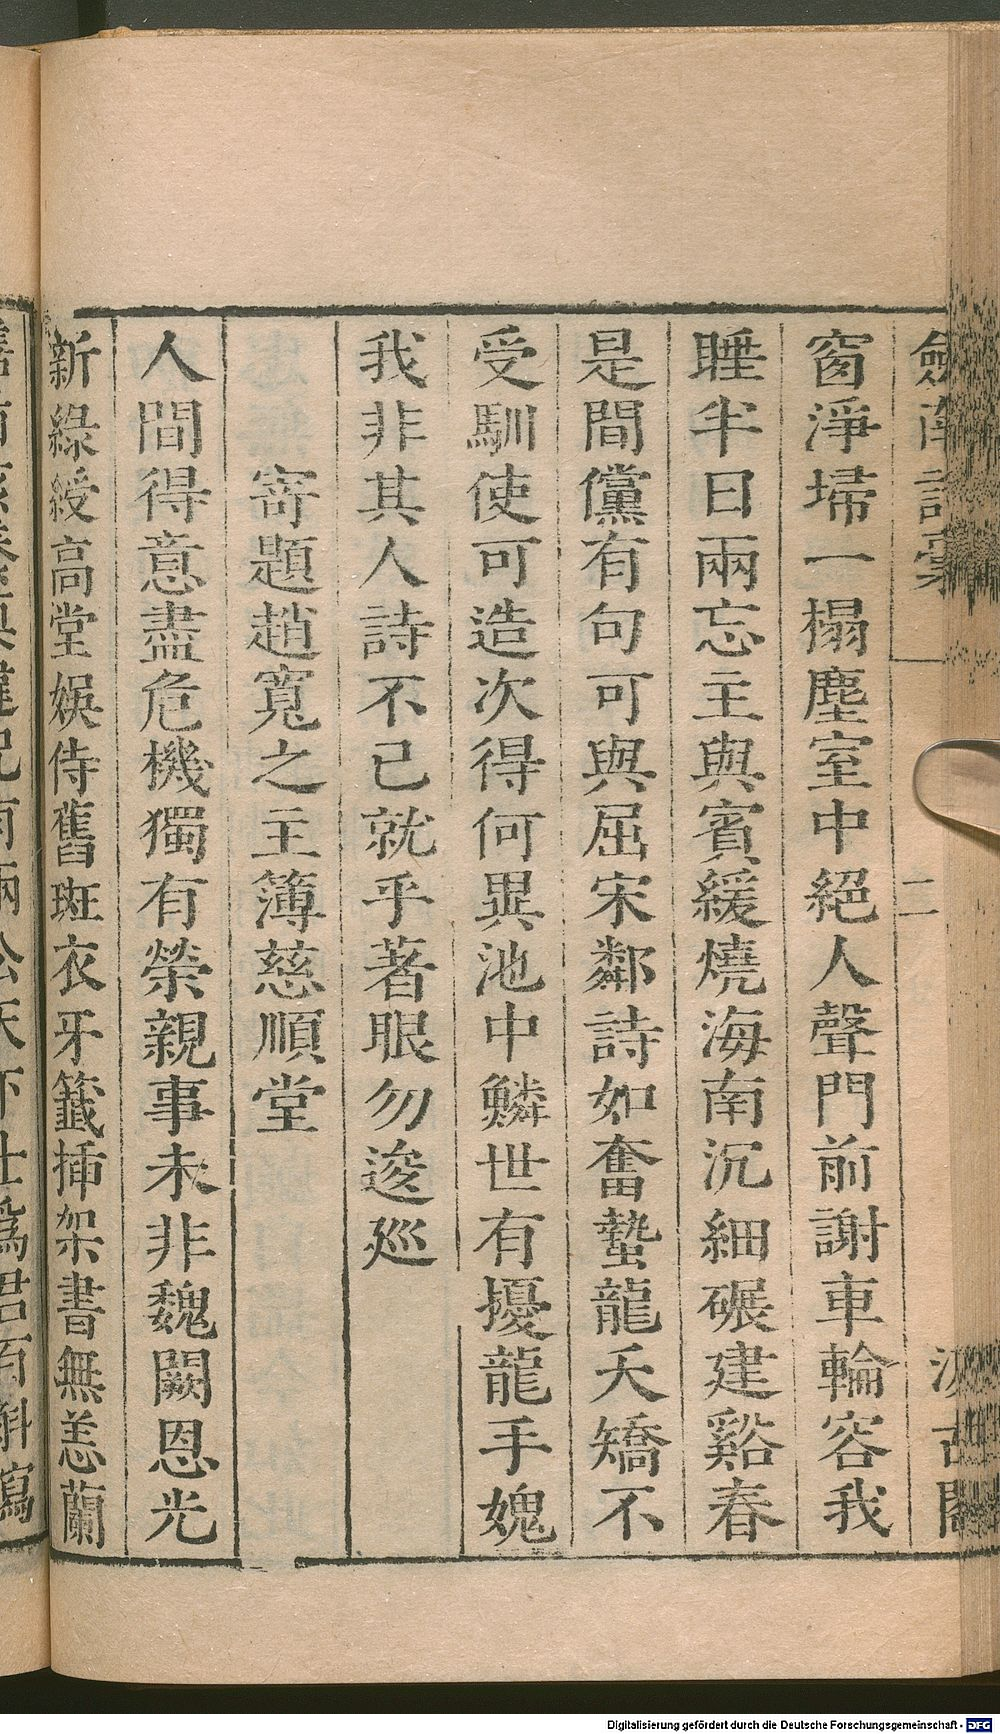 劍南詩稾
二
汲古閣
窗淨埽一榻塵室中絕人聲門前謝車輪容我
睡半日兩忘主與賓緩燒海南沉細碾建谿春
是間儻有句可與屈宋鄰詩如奮蟄龍夭矯不
受馴使可造次得何異池中鱗世有擾龍手媿
我非其人詩不已就乎著眼勿逡廵
寄題趙寬之主簿慈順堂
人間得意盡危機獨有榮親事未非魏闕恩光
新綠綬高堂娛侍舊斑衣牙籤揷架書無恙蘭
Digitalisierung gefördert durch die Deutsche Forschungsgemeinschaft - DFG